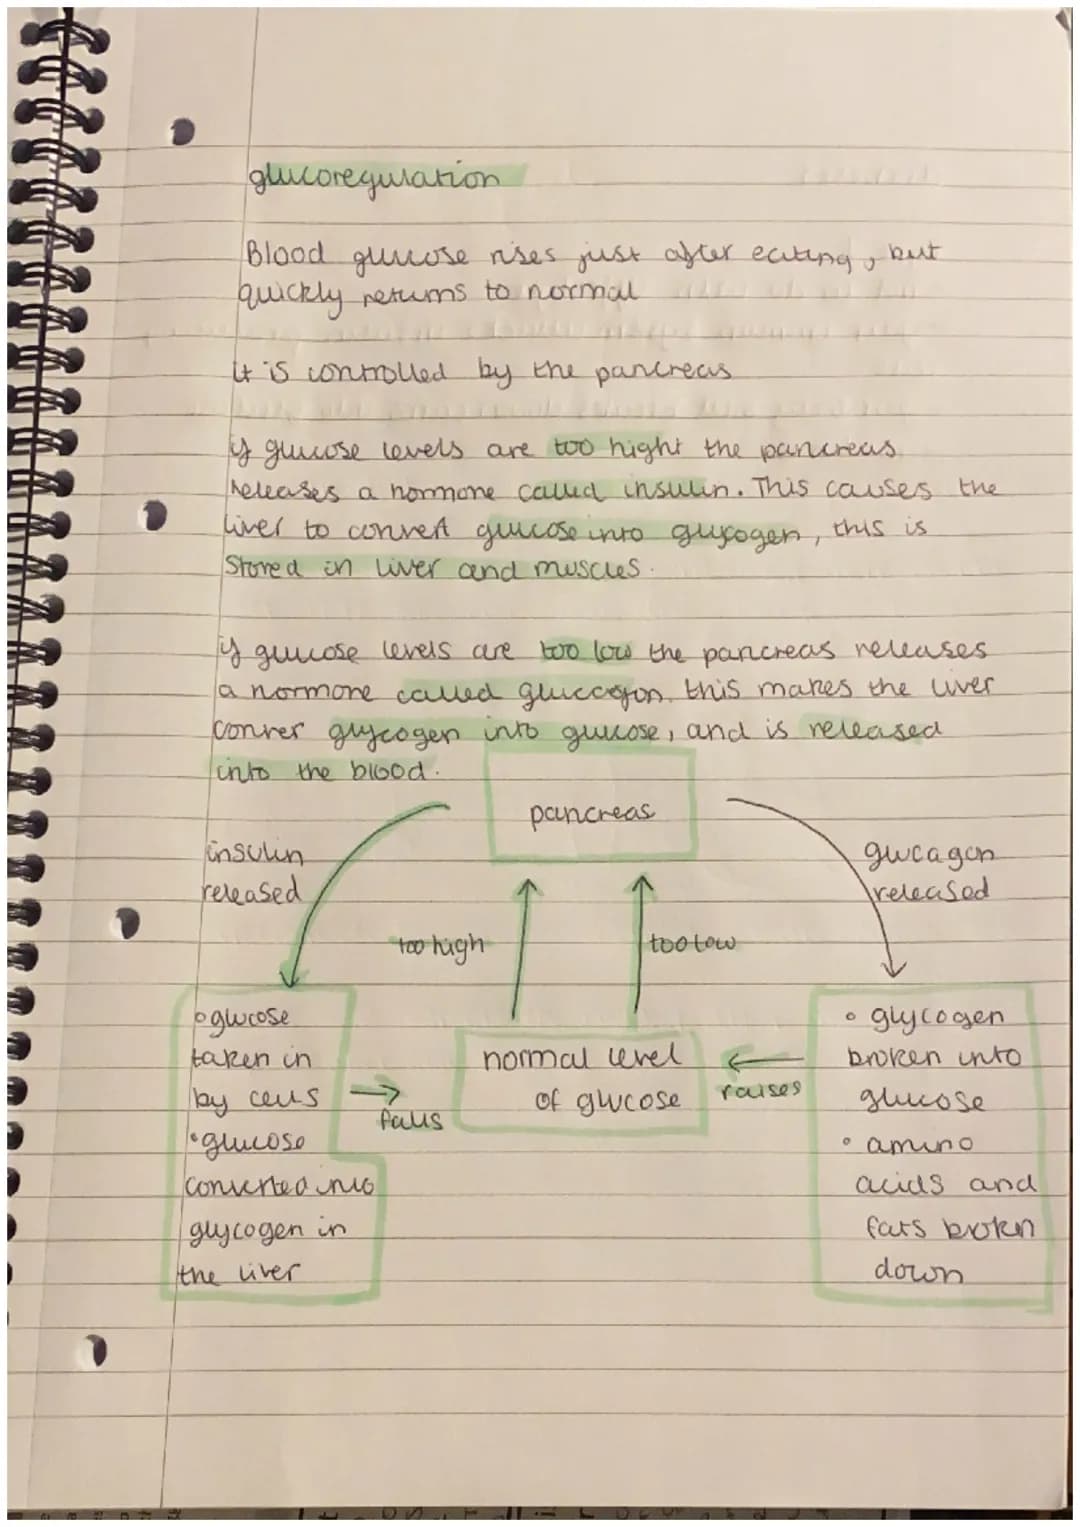 glucoregulation
Blood glucose rises just after eating, but
quickly returns to normal
it is controlled by the pancreas
if glucose levels are too hight the pancreas
releases a hormone called insulin. This causes the
liver to convert glucose into glycogen, this is
stored in liver and muscles.
if glucose levels are too low the pancreas releases
a hormone called glucagon. this makes the liver
conver glycogen into glucose, and is released
into the blood.
pancreas
insulin
released
glucagon
released
too high
too low
• glucose
taken in
by cells
• glucose
converted into
glycogen in
the liver
falls
normal level
of glucose
raises
• glycogen
broken into
glucose
• amino
acids and
fats broken
down